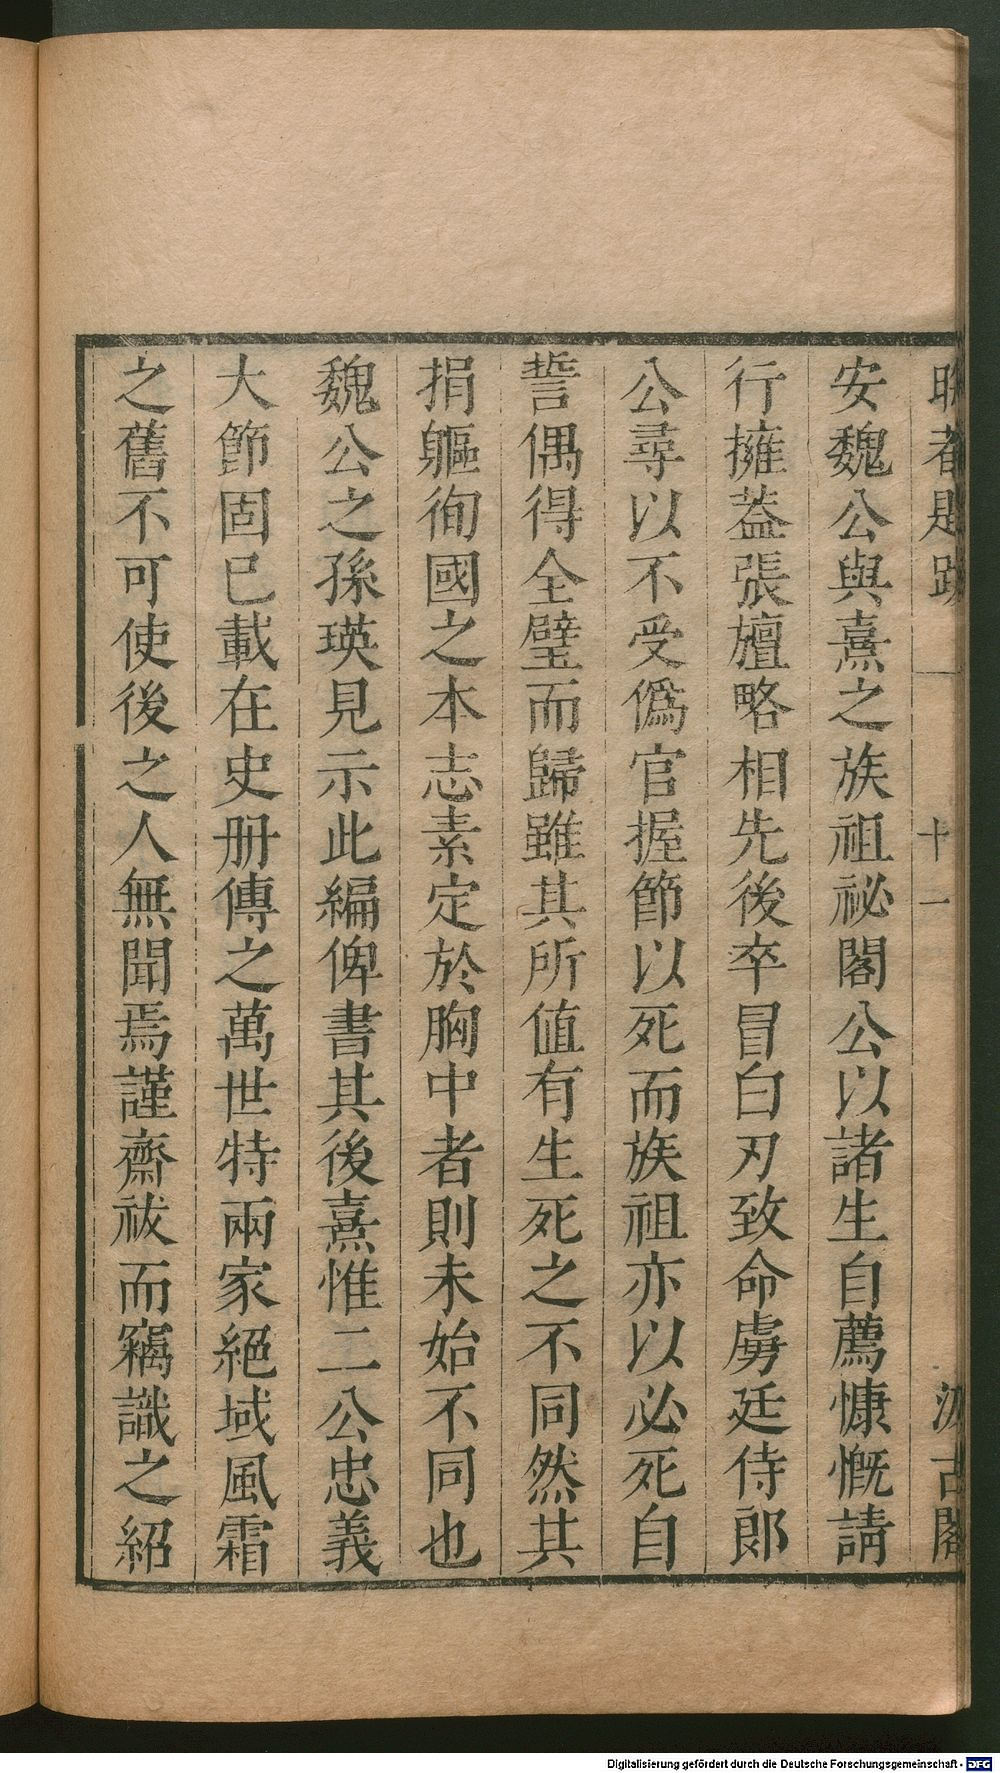 安魏公與熹之族祖祕閣公以諸生自薦慷慨請
行擁葢張旜略相先後卒冒白刃致命虜廷侍郎
公尋以不受僞官握節以死而族祖亦以必死自
誓偶得全璧而歸雖其所值有生死之不同然其
捐軀徇國之本志素定於胸中者則未始不同也
魏公之孫瑛見示此編俾書其後熹惟二公忠義
大節固已載在史册傳之萬世特兩家絕域風霜
之舊不可使後之人無聞焉謹齋祓而竊識之紹
十一
汲古閣
Digitalisierung gefördert durch die Deutsche Forschungsgemeinschaft - DFG